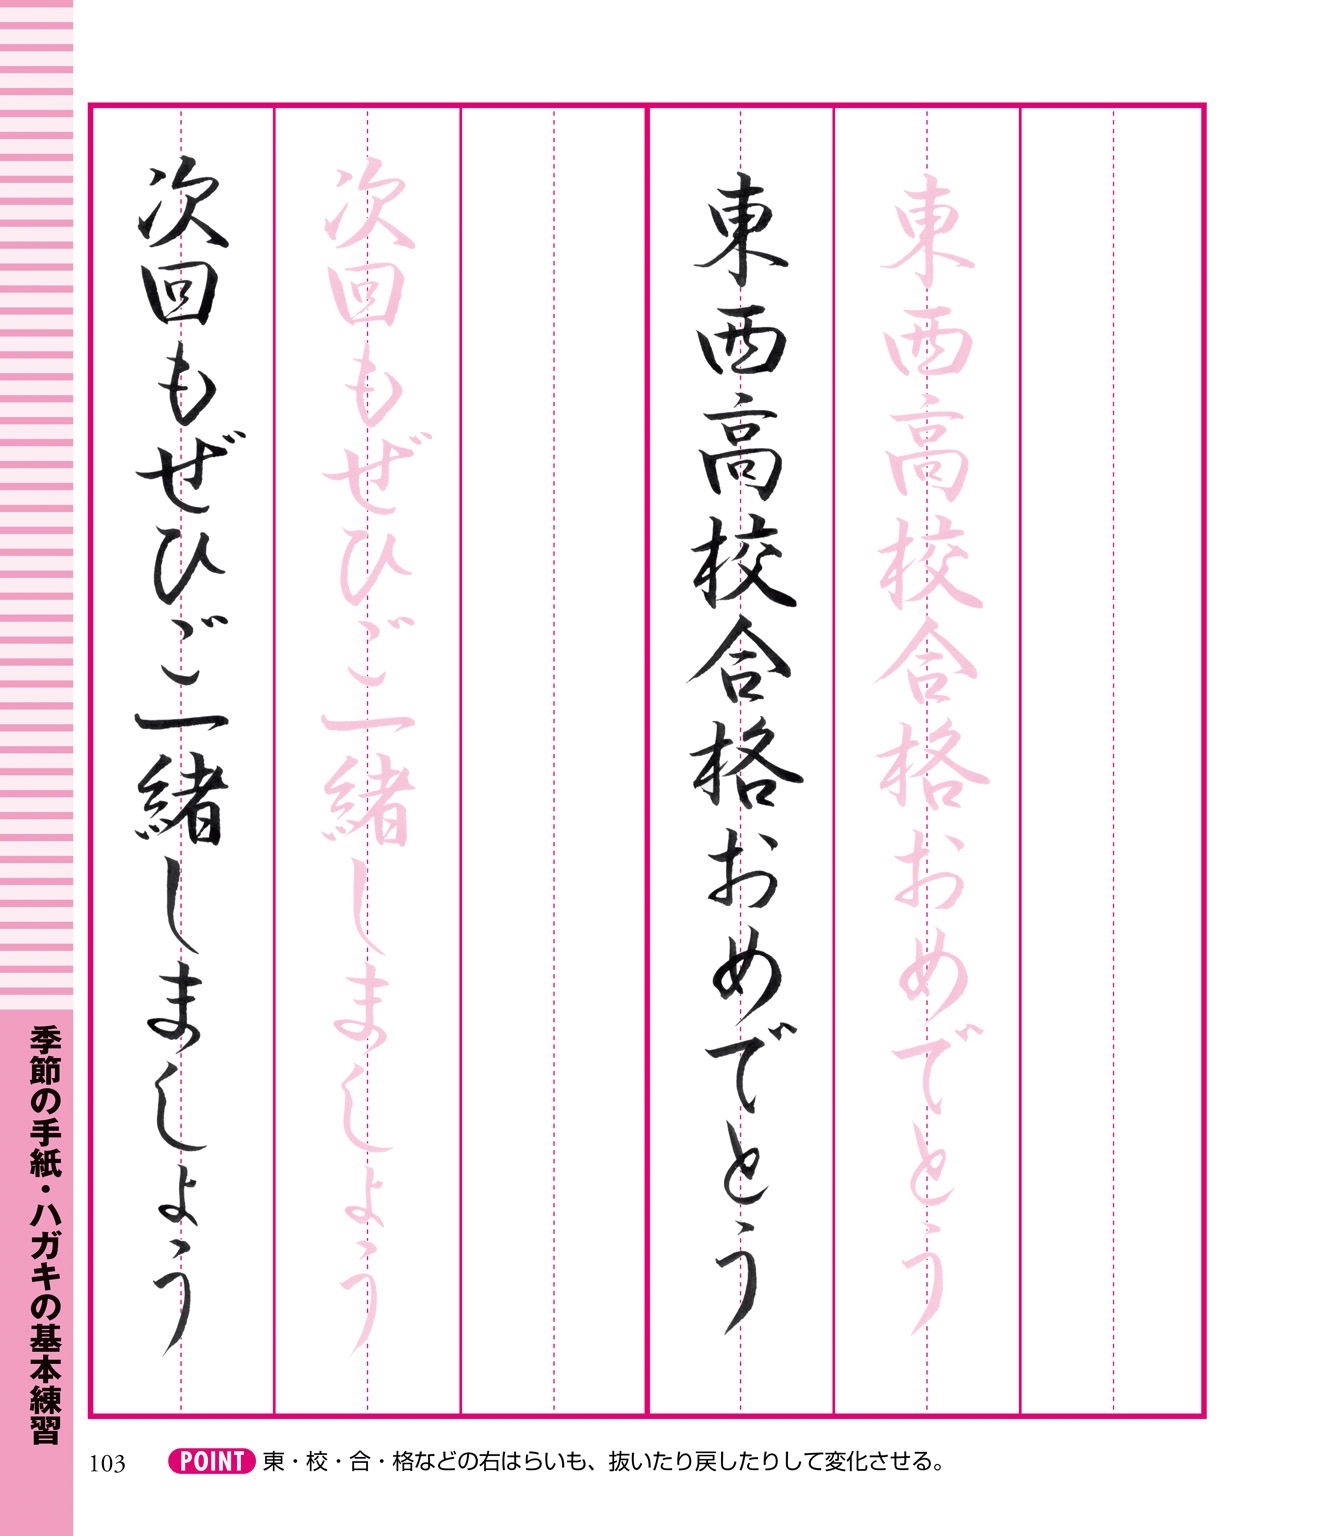 東西高校合格おめでとう
東西高校合格おめでとう
次回もぜひご一緒しましょう
次回もぜひご一緒しましょう
季節の手紙・ハガキの基本練習
103
POINT 東・校・合・格などの右はらいも、抜いたり戻したりして変化させる。